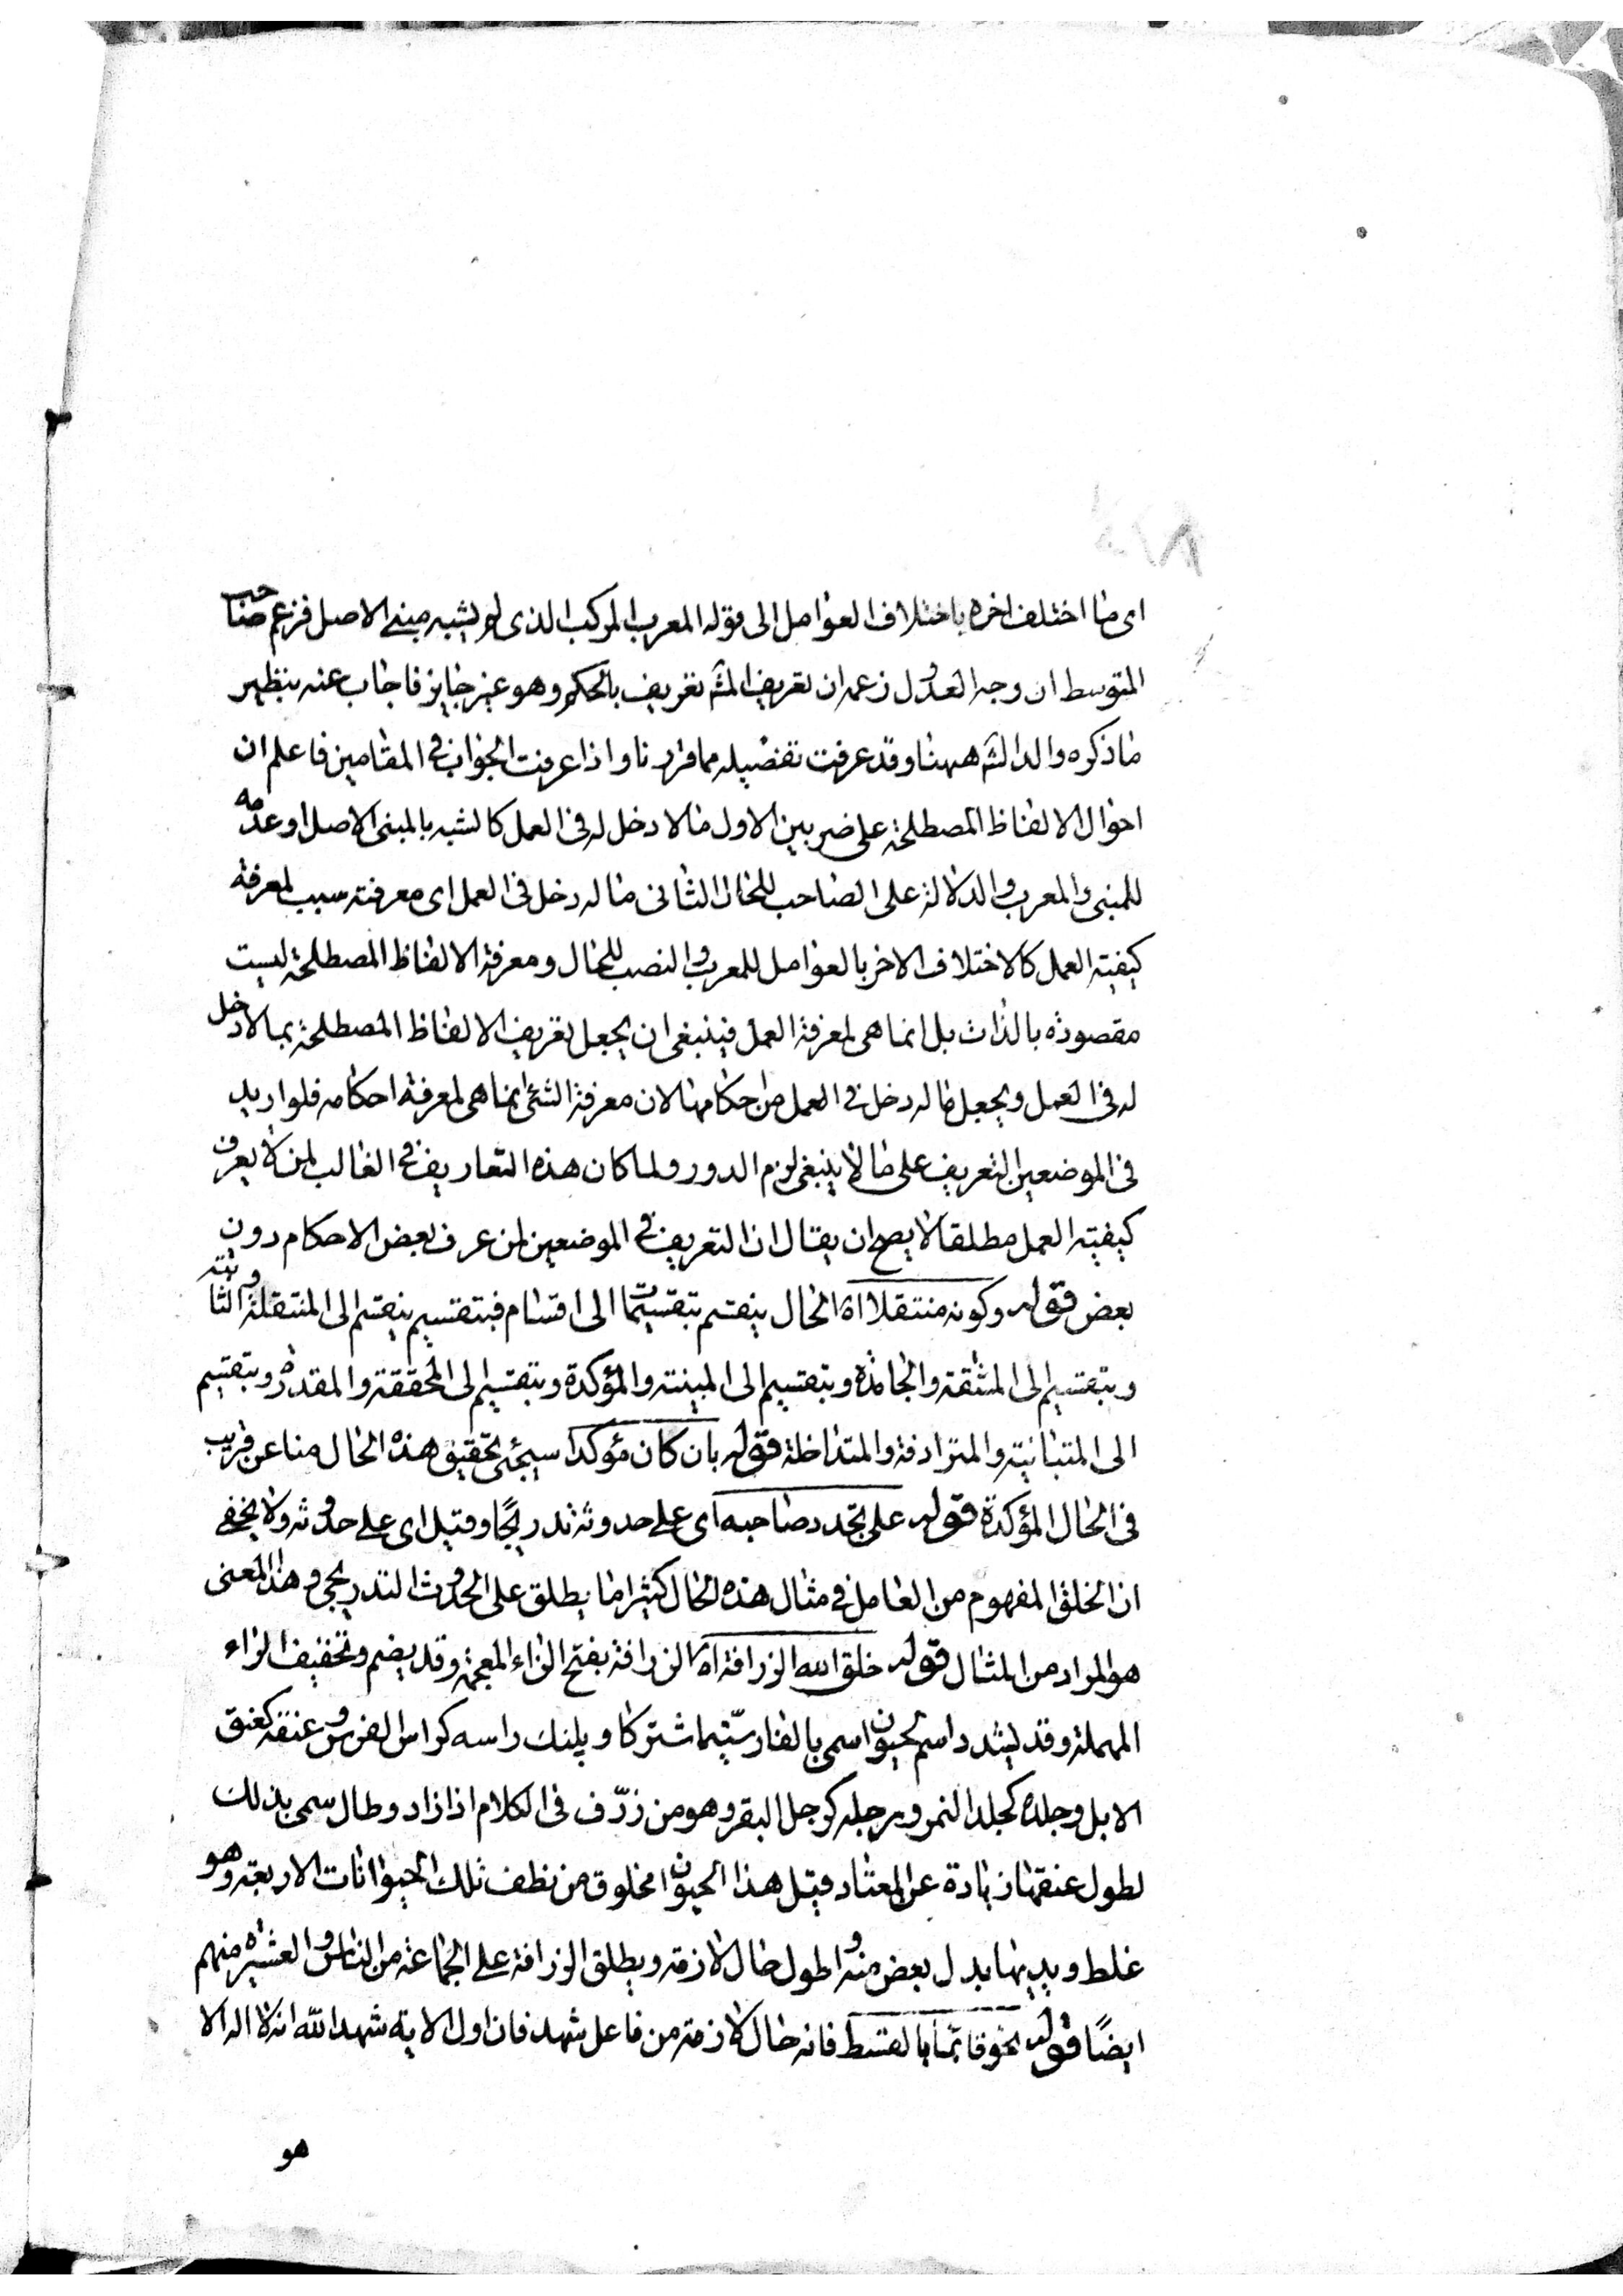 اى ما اختلف اخره باختلاف العوامل الى قوله المعرب المركب الذى لم يشبه مبنى الاصل فزعم صاحب
المتوسط ان وجه العدول زعمه ان تعريف المش تعريف بالحكم وهو غير جايز فاجاب عنه بنظير
ما ذكره والد الش ههنا وقد عرفت تفصيله مما قررنا واذا عرفت الجواب فى المقامين فاعلم ان
احوال الالفاظ المصطلحة على ضربين الاول ما لا دخل له فى العمل كالشبه بالمبنى الاصل او عدمه
للمبنى والمعرب والدلالة على الصاحب للحال الثانى ما له دخل فى العمل اى معرفته سبب لمعرفة
كيفية العمل كالاختلاف الاخر بالعوامل للمعرب والنصب للحال ومعرفة الالفاظ المصطلحة ليست
مقصودة بالذات بل انما هى لمعرفة العمل فينبغى ان يجعل تعريف الالفاظ المصطلحة بما لا دخل
له فى العمل ويجعل ما له دخل فى العمل من احكامها لان معرفة الشئ انما هى لمعرفة احكامه فلو اريد
فى الموضعين التعريف على ما لا ينبغى لزم الدور ولما كان هذه التعاريف فى الغالب لمن لا يعرف
كيفية العمل مطلقا لا يصح ان يقال ان التعريف فى الموضعين لمن عرف بعض الاحكام دون
بعض قوله وكونه منتقلا اه الحال ينقسم بتقسيمات الى اقسام فبتقسيم ينقسم الى المنتقلة والثابتة
وبتقسيم الى المشتقة والجامدة وبتقسيم الى المبينة والمؤكدة وبتقسيم الى المحققة والمقدرة وبتقسيم
الى المتباينة والمترادفة والمتداخلة قوله بان كان مؤكدا سيجئ تحقيق هذه الحال منا عن قريب
فى الحال المؤكدة قوله على تجدد صاحبه اى على حدوثه تدريجًا وقيل اى على حدوثه ولا يخفى
ان الخلق المفهوم من العامل فى مثال هذه الحال كثيرا ما يطلق على الحدوث التدريجى وهذا المعنى
هو المراد من المثال قوله خلق الله الزرافة اه الزرافة بفتح الزاء المعجمة وقد يضم وتخفيف الراء
المهملة وقد يشدد اسم لحيوان اسمى بالفارسية اشتر كاو پلنك راسه كراس الفرس وعنقه كعنق
الابل وجلده كجلد النمر ورجله كرجل البقر وهو من زرّف فى الكلام اذا زاد وطال سمى بذلك
لطول عنقها زيادة عن المعتاد قيل هذا الحيوان مخلوق من نطف تلك الحيوانات الاربعة وهو
غلط ويديها بدل بعض منه واطول حال لازمة ويطلق الزرافة على الجماعة من الناس والعشيرة منهم
ايضًا قوله نحو قائما بالقسط فانه حال لازمة من فاعل شهد فان اول الاية شهد الله انه لا اله الا
هو